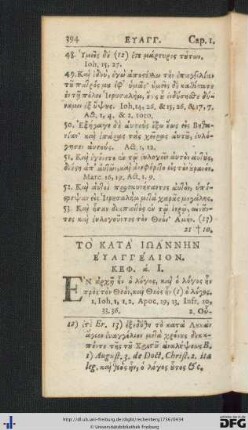 394 ΕΥΑΓΓ. Cap. 1.
48. Ὑμεῖς δέ (12) ἐςε μάρτυρες τούτων.
Joh. 15. 27.
49. Καὶ ἰδού, ἐγὼ ἀποςέλλω τὴν ἐπαγγελίαν
τοῦ πατρός μου ἐφ' ὑμᾶς· ὑμεῖς δὲ καθίσατε
ἐν τῇ πόλει Ἱερουσαλὴμ, ἕως οὗ ἐνδύσησθε δύναμιν
ἐξ ὕψους. Joh. 14. 26. & 15. 26. &
Act. 1, 4. & 2.
50. Ἐξήγαγε δὲ αὐτοὺς ἔξω ἕως εἰς Βηθανίαν·
καὶ ἐπάρας τὰς χεῖρας αὑτοῦ, εὐλόγησεν
αὐτούς. Act. 1, 12.
51. Καὶ ἐγένετο ἐν τῷ εὐλογεῖν αὐτὸν αὐτοὺς,
διέςη ἀπ' αὐτῶν, καὶ ἀνεφέρετο εἰς τὸν οὐρανόν.
Marc. 16, 19. Act. 1, 9.
52. Καὶ αὐτοὶ προσκυνήσαντες αὐτὸν, ὑπέςρεψαν
εἰς Ἱερουσαλὴμ μετὰ χαρᾶς μεγάλης.
53. Καὶ ἦσαν διαπαντὸς ἐν τῷ ἱερῷ, αἰνοῦντες
καὶ εὐλογοῦντες τὸν Θεόν. Ἀμήν. (17)
ΤΟ ΚΑΤΑ ΙΩΑΝΝΗΝ
ΕΥΑΓΓΕΛΙΟΝ.
ΚΕΦ. ά. I.
ΕΝ ἀρχῇ ἦν ὁ λόγος, καὶ ὁ λόγος ἦν
πρὸς τὸν Θεὸν, καὶ Θεὸς ἦν (1) ὁ λόγος.
1. Joh. 1, 1. 2. Apoc. 19, 13. Infr. 10,
2. Οὗ-
1) August. 3. de Doct. Christ. 2. ita
leg. καὶ Θεὸς ἦν. ὁ λόγος οὗτος &c.
http://digi.ub.uni-heidelberg.de/diglit/rechenberg1736/0434
© Universitätsbibliothek Freiburg
UFB